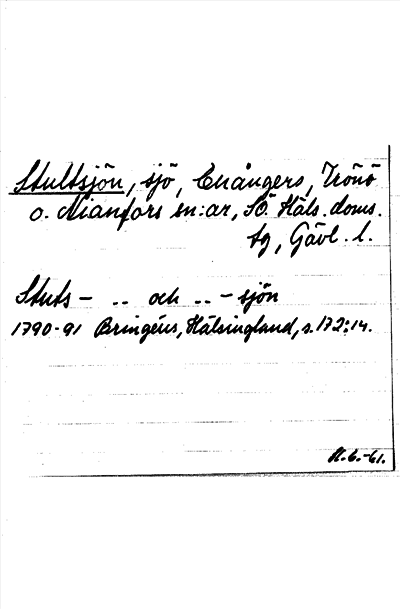 Stultsjön, sjö, Enångers, Trönö
o. Nianfors sn:ar, SÖ. Häls. doms.
tg, Gävl. l.
Stuts- .. och .. - sjön
1790-91 Bringéus, Hälsingland, s. 172:14.
6.-61.